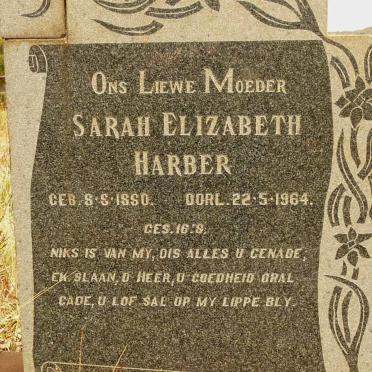 ONS LIEWE MOEDER
SARAH ELIZABETH
HARBER
GEB. 8·8·1880. OORL. 22·5·1964.
GES. 16:8.
NIKS IS VAN MY, DIS ALLES U GENADE,
EK SLAAN, O HEER, U GOEDHEID ORAL
GADE, U LOF SAL OP MY LIPPE BLY.